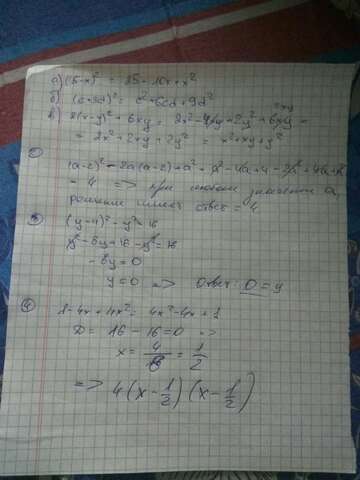 а) (5-x)² = 25-10x+x²
б) (c+3d)² = c²+6cd+9d²
в) 2(x-y)²+6xy = 2x²-4xy+2y²+6xy =
2xy
= 2x²+2xy+2y² = x²+xy+y²
(a-2)²-2a(a-2)+a²+a²-4a+4-2a²+4a+a²
= 4 => при любом значении a,
решение имеет ответ = 4
③ (y-4)²-y²=16
y²-8y+16-y²=16
-8y=0
y=0 => Ответ: 0=y
④ 1-4x+4x² = 4x²-4x+1
D= 16-16=0 =>
x= 4/8 = 1/2
=> 4(x-1/2)(x-1/2)